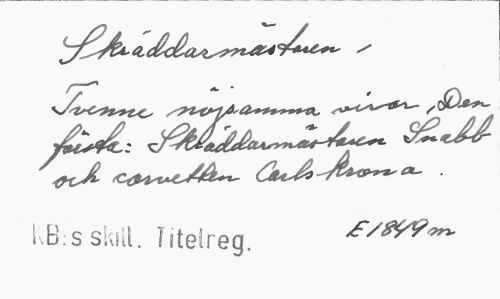 Skräddarmästaren,
Tvenne nöjsamma visor, Den
första: Skräddarmästaren Snabb
och corvetten Carlskrona.
KB:s skill. Titelreg.
E 1849 m